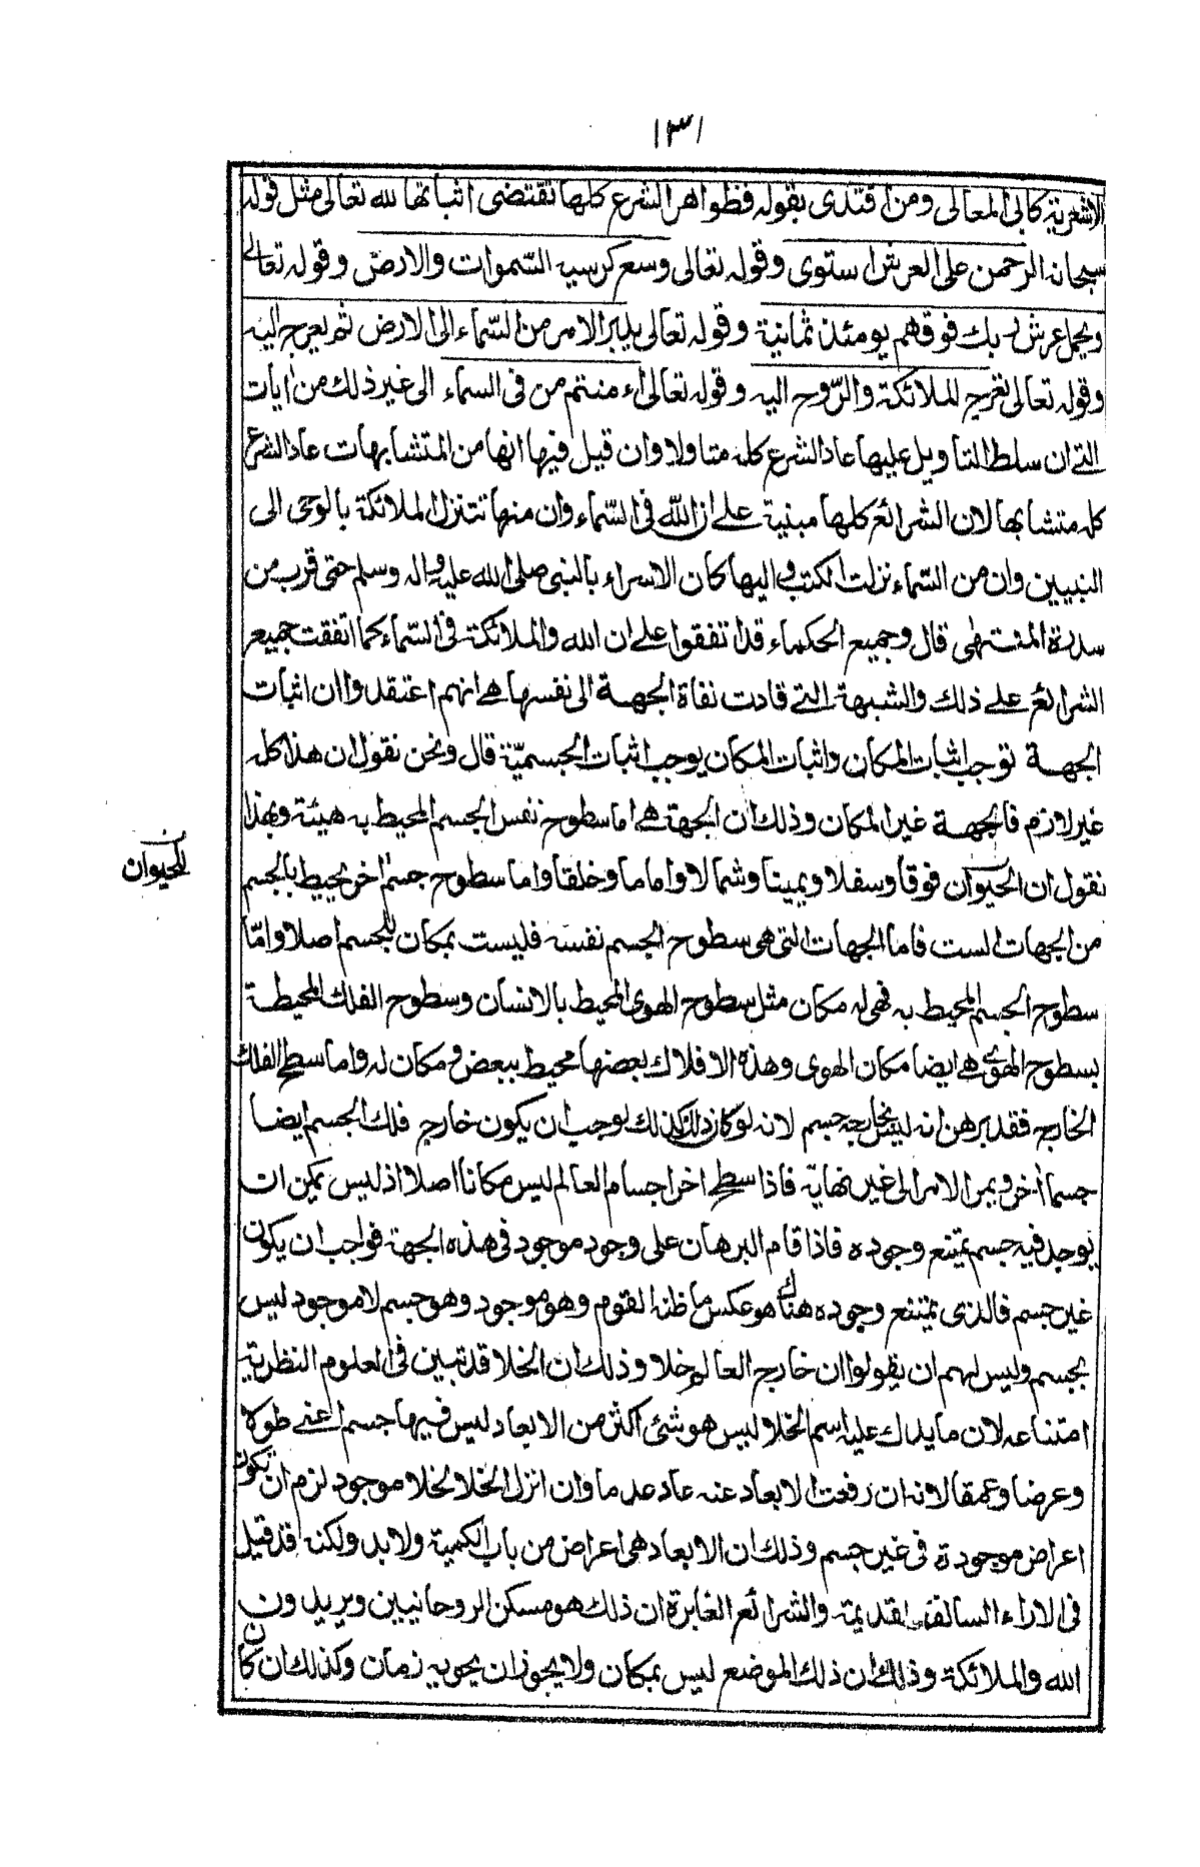 ١٣١
الاشعرية كابى المعالى ومن اقتدى بقوله فظواهر الشرع كلها تقتضى اثباتها لله تعالى مثل قوله
سبحانه الرحمن على العرش استوى وقوله تعالى وسع كرسيه السّموات والارض وقوله تعالى
ويحمل عرش ربك فوقهم يومئذ ثمانية وقوله تعالى يدبر الامر من السّماء الى الارض ثم يعرج اليه
وقوله تعالى تعرج الملائكة والرّوح اليه وقوله تعالى أء منتم من فى السماء الى غير ذلك من ايات
التى ان سلط التاويل عليها عاد الشرع كله متاولا وان قيل فيها انها من المتشابهات عاد الشرع
كله متشابها لان الشرائع كلها مبنية على ان الله فى السّماء وان منها تتنزل الملائكة بالوحى الى
النبيين وان من السّماء نزلت الكتب واليها كان الاسراء بالنبى صلى الله عليه واله وسلم حتى قرب من
سدرة المنتهى قال وجميع الحكماء قد اتفقوا على ان الله والملائكة فى السّماء كما اتفقت جميع
الشرائع على ذلك والشبهة التى قادت نفاة الجهة الى نفسها هى انهم اعتقدوا ان اثبات
الجهة توجب اثبات المكان واثبات المكان يوجب اثبات الجسميّة قال ونحن نقول ان هذا كله
غير لازم فالجهة غير المكان وذلك ان الجهة هى اما سطوح نفس الجسم المحيط به هيئة وبهذا
نقول ان الحيوان فوقا وسفلا ويمينا وشمالا واماما وخلفا واما سطوح جسم اخر يحيط بالجسم
للحيوان
من الجهات الست فاما الجهات التى هى سطوح الجسم نفسه فليست بمكان للجسم اصلا وامّا
سطوح الجسم المحيط به فهى له مكان مثل سطوح الهوى المحيط بالانسان وسطوح الفلك المحيطة
بسطوح الهوى هى ايضا مكان الهوى وهذه الافلاك بعضها محيط ببعض و مكان له واما سطح الفلك
الخارج فقد برهن انه ليس بخارجه جسم لانه لو كان ذلك كذلك لوجب ان يكون خارج فلك الجسم ايضا
جسما اخر ويمر الامر الى غير نهاية فاذا سطح اخر اجسام العالم ليس مكانا اصلا اذ ليس يمكن ان
يوجد فيه جسم يمتنع وجوده فاذا قام البرهان على وجود موجود فى هذه الجهة فواجب ان يكون
غير جسم فالذى يمتنع وجوده هناك هو عكس ما ظنه القوم وهو موجود وهو جسم لا موجود ليس
بجسم وليس لهم ان يقولوا ان خارج العالم خلا وذلك ان الخلا قد تبين فى العلوم النظرية
امتناعه لان ما يدل عليه اسم الخلا ليس هو شئى اكثر من الابعاد ليس فيها جسم اعنى طولا
وعرضا وعمقا لانه ان رفعت الابعاد عنه عاد عدما وان انزل الخلا الخلا موجود لزم ان تكون
اعراض موجودة فى غير جسم وذلك ان الابعاد هى اعراض من باب الكمية ولا بد ولكنه قد قيل
فى الاراء السالفة القديمة والشرائع الغابرة ان ذلك هو مسكن الروحانيين ويريدون
الله والملائكة وذلك ان ذلك الموضع ليس بمكان ولا يجوز ان يحويه زمان وكذلك ان كان